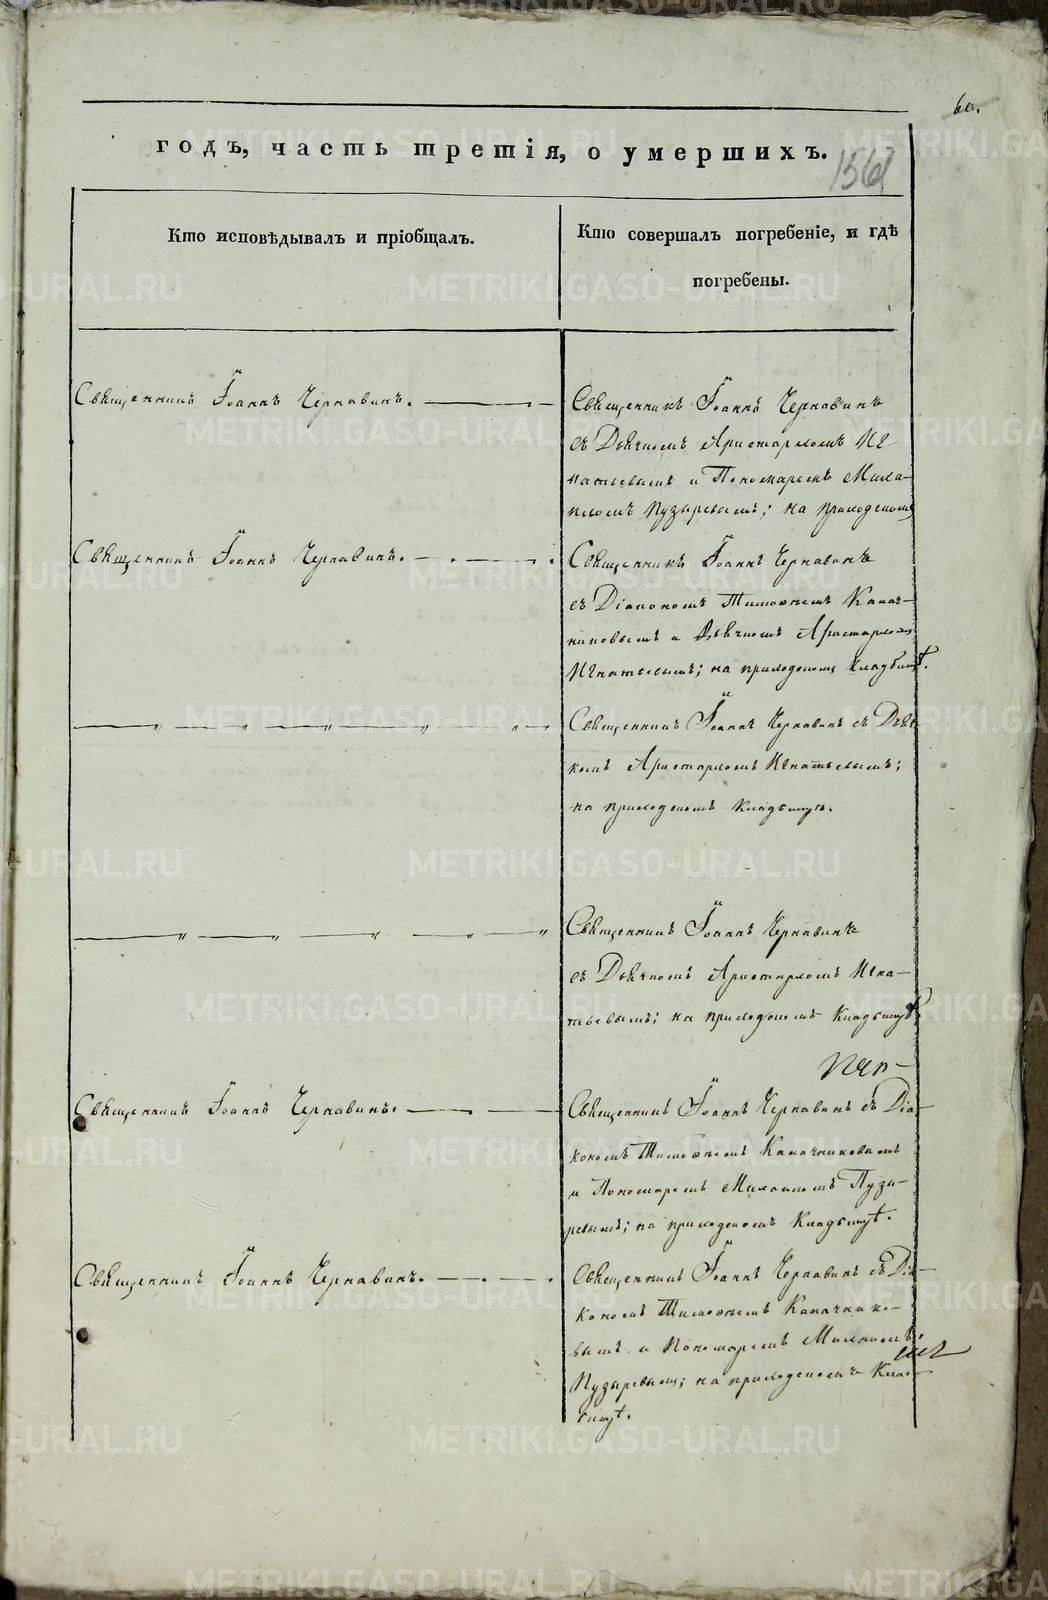 60.
годъ, часть третія, о умершихъ.
156
Кто исповѣдывалъ и пріобщалъ.
Кто совершалъ погребеніе, и гдѣ
погребены.
Священникъ Іоаннъ Чернавинъ.
Священникъ Іоаннъ Чернавинъ
съ Дьячкомъ Аристархомъ Иг-
натьевымъ и Пономаремъ Миха-
иломъ Пузыревымъ; на приходскомъ
Священникъ Іоаннъ Чернавинъ.
Священникъ Іоаннъ Чернавинъ
съ Діакономъ Тимоѳеемъ Калач-
никовымъ и Дьячкомъ Аристархомъ
Игнатьевымъ; на приходскомъ Кладбищѣ.
Священникъ Іоаннъ Чернавинъ съ Дьяч-
комъ Аристархомъ Игнатьевымъ;
на приходскомъ Кладбищѣ.
Священникъ Іоаннъ Чернавинъ
съ Дьячкомъ Аристархомъ Игна-
тьевымъ; на приходскомъ Кладбищѣ
Священникъ Іоаннъ Чернавинъ.
Священникъ Іоаннъ Чернавинъ съ Діа-
кономъ Тимоѳеемъ Калачниковымъ
и Пономаремъ Михаиломъ Пузы-
ревымъ; на приходскомъ Кладбищѣ.
Священникъ Іоаннъ Чернавинъ.
Священникъ Іоаннъ Чернавинъ съ Діа-
кономъ Тимоѳеемъ Калачнико-
вымъ и Пономаремъ Михаиломъ
Пузыревымъ; на приходскомъКлад-
бищѣ.
METRIKI.GASO-URAL.RU